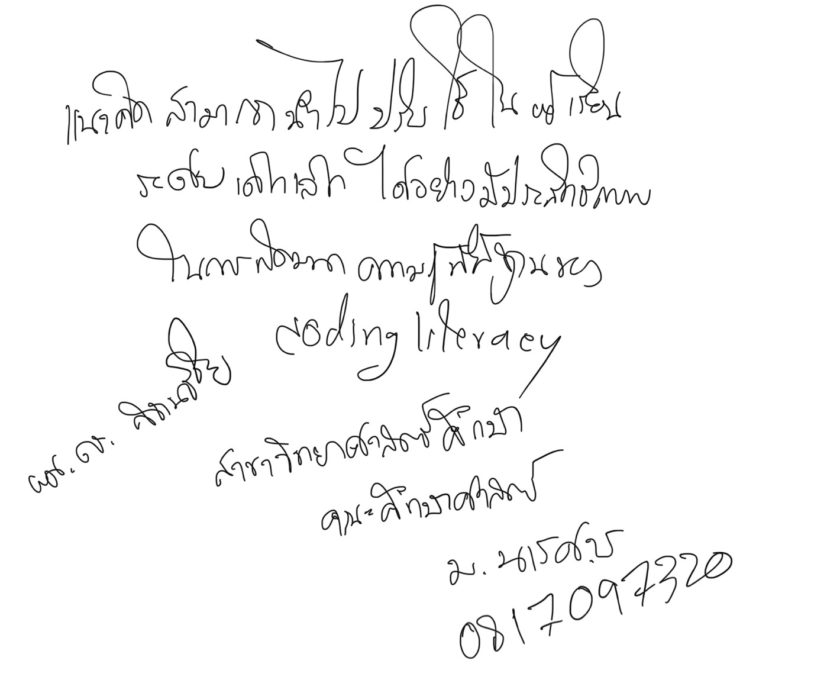 แนวคิด สามารถ นำไป ปรับ ใช้ ใน ผู้เรียน
ระดับ เด็กเล็ก ได้อย่างมีประสิทธิภาพ
ในการพัฒนา ความรู้พื้นฐานของ
coding literacy
ผศ.ดร.
สาขาวิทยาศาสตร์ศึกษา
คณะศึกษาศาสตร์
ม. นเรศวร
0817097320